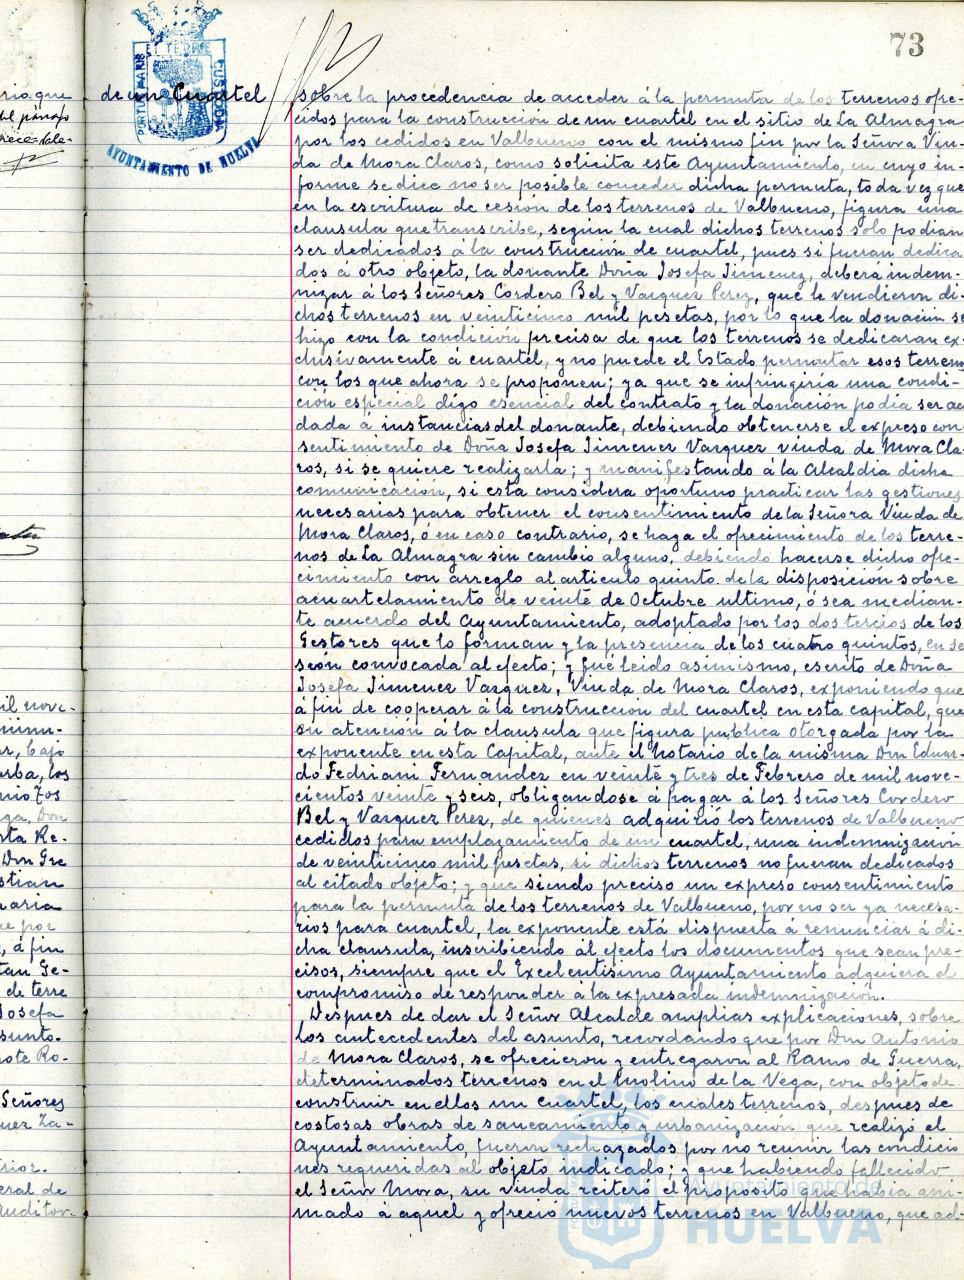 73
de un Cuartel
PORTUS MARIS ET TERRE CUSTODIA
AYUNTAMIENTO DE HUELVA
sobre la procedencia de acceder á la permuta de los terrenos ofre-
cidos para la construcción de un cuartel en el sitio de La Almagra
por los cedidos en Valbueno con el mismo fin por la Señora Viu-
da de Mora Claros, como solicita este Ayuntamiento, en cuyo in-
forme se dice no ser posible conceder dicha permuta, toda vez que
en la escritura de cesión de los terrenos de Valbueno, figura una
clausula que transcribe, según la cual dichos terrenos solo podian
ser dedicados á la construcción de cuartel, pues si fueran dedica
dos á otro objeto, la donante Doña Josefa Jimenez, deberá indem-
nizar á los Señores Cordero Bel y Vazquez Perez, que le vendieron di-
chos terrenos en veinticinco mil pesetas, por lo que la donación se
hizo con la condición precisa de que los terrenos se dedicaran ex-
clusivamente á cuartel, y no puede el Estado permutar esos terrenos
con los que ahora se proponen; ya que se infringiria una condi-
ción especial digo esencial del contrato y la donación podia ser an
dada á instancias del donante, debiendo obtenerse el expreso con-
sentimiento de Doña Josefa Jimenez Vazquez viuda de Mora Cla-
ros, si se quiere realizarla; y manifestando á la Alcaldia dicha
comunicación, si esta considera oportuno practicar las gestiones
necesarias para obtener el consentimiento de la Señora Viuda de
Mora Claros, ó en caso contrario, se haga el ofrecimiento de los terre-
nos de La Almagra sin cambio alguno, debiendo hacerse dicho ofre-
cimiento con arreglo al articulo quinto de la disposición sobre
acuartelamiento de veinte de Octubre ultimo, ó sea median-
te acuerdo del Ayuntamiento, adoptado por los dos tercios de los
Gestores que lo forman y la presencia de los cuatro quintos, en se
seón convocada al efecto; y fué leido asimismo, escrito de Doña
Josefa Jimenez Vazquez, Viuda de Mora Claros, exponiendo que
á fin de cooperar á la construcción del cuartel en esta capital, que
en atención á la clausula que figura publica otorgada por la
exponente en esta Capital, ante el Notario de la misma Don Eduar-
do Fedriani Fernandez en veinte y tres de Febrero de mil nove-
cientos veinte y seis, obligandose á pagar á los Señores Cordero
Bel y Vazquez Perez, de quienes adquirió los terrenos de Valbueno
cedidos para emplazamiento de un cuartel, una indemnización
de veinticinco mil pesetas, si dichos terrenos no fueran dedicados
al citado objeto; y que siendo preciso un expreso consentimiento
para la permuta de los terrenos de Valbueno, por no ser ya necesa-
rios para cuartel, la exponente está dispuesta á renunciar á di-
cha clausula, inscribiendo al efecto los documentos que sean pre-
cisos, siempre que el Excelentisimo Ayuntamiento adquiera el
compromiso de responder á la expresada indemnización.
Despues de dar el Señor Alcalde amplias explicaciones, sobre
los antecedentes del asunto, recordando que por Don Antonio
de Mora Claros, se ofrecieron y entregaron al Ramo de Guerra,
determinados terrenos en el Molino de la Vega, con objeto de
construir en ellos un cuartel, los cuales terrenos, despues de
costosas obras de saneamiento y urbanización que realizó el
Ayuntamiento, fueron rechazados por no reunir las condicio
nes requeridas al objeto indicado; y que habiendo fallecido
el Señor Mora, su viuda reiteró el proposito que habia ani-
mado á aquel y ofreció nuevos terrenos en Valbueno, que ad-
Ayuntamiento de
HUELVA